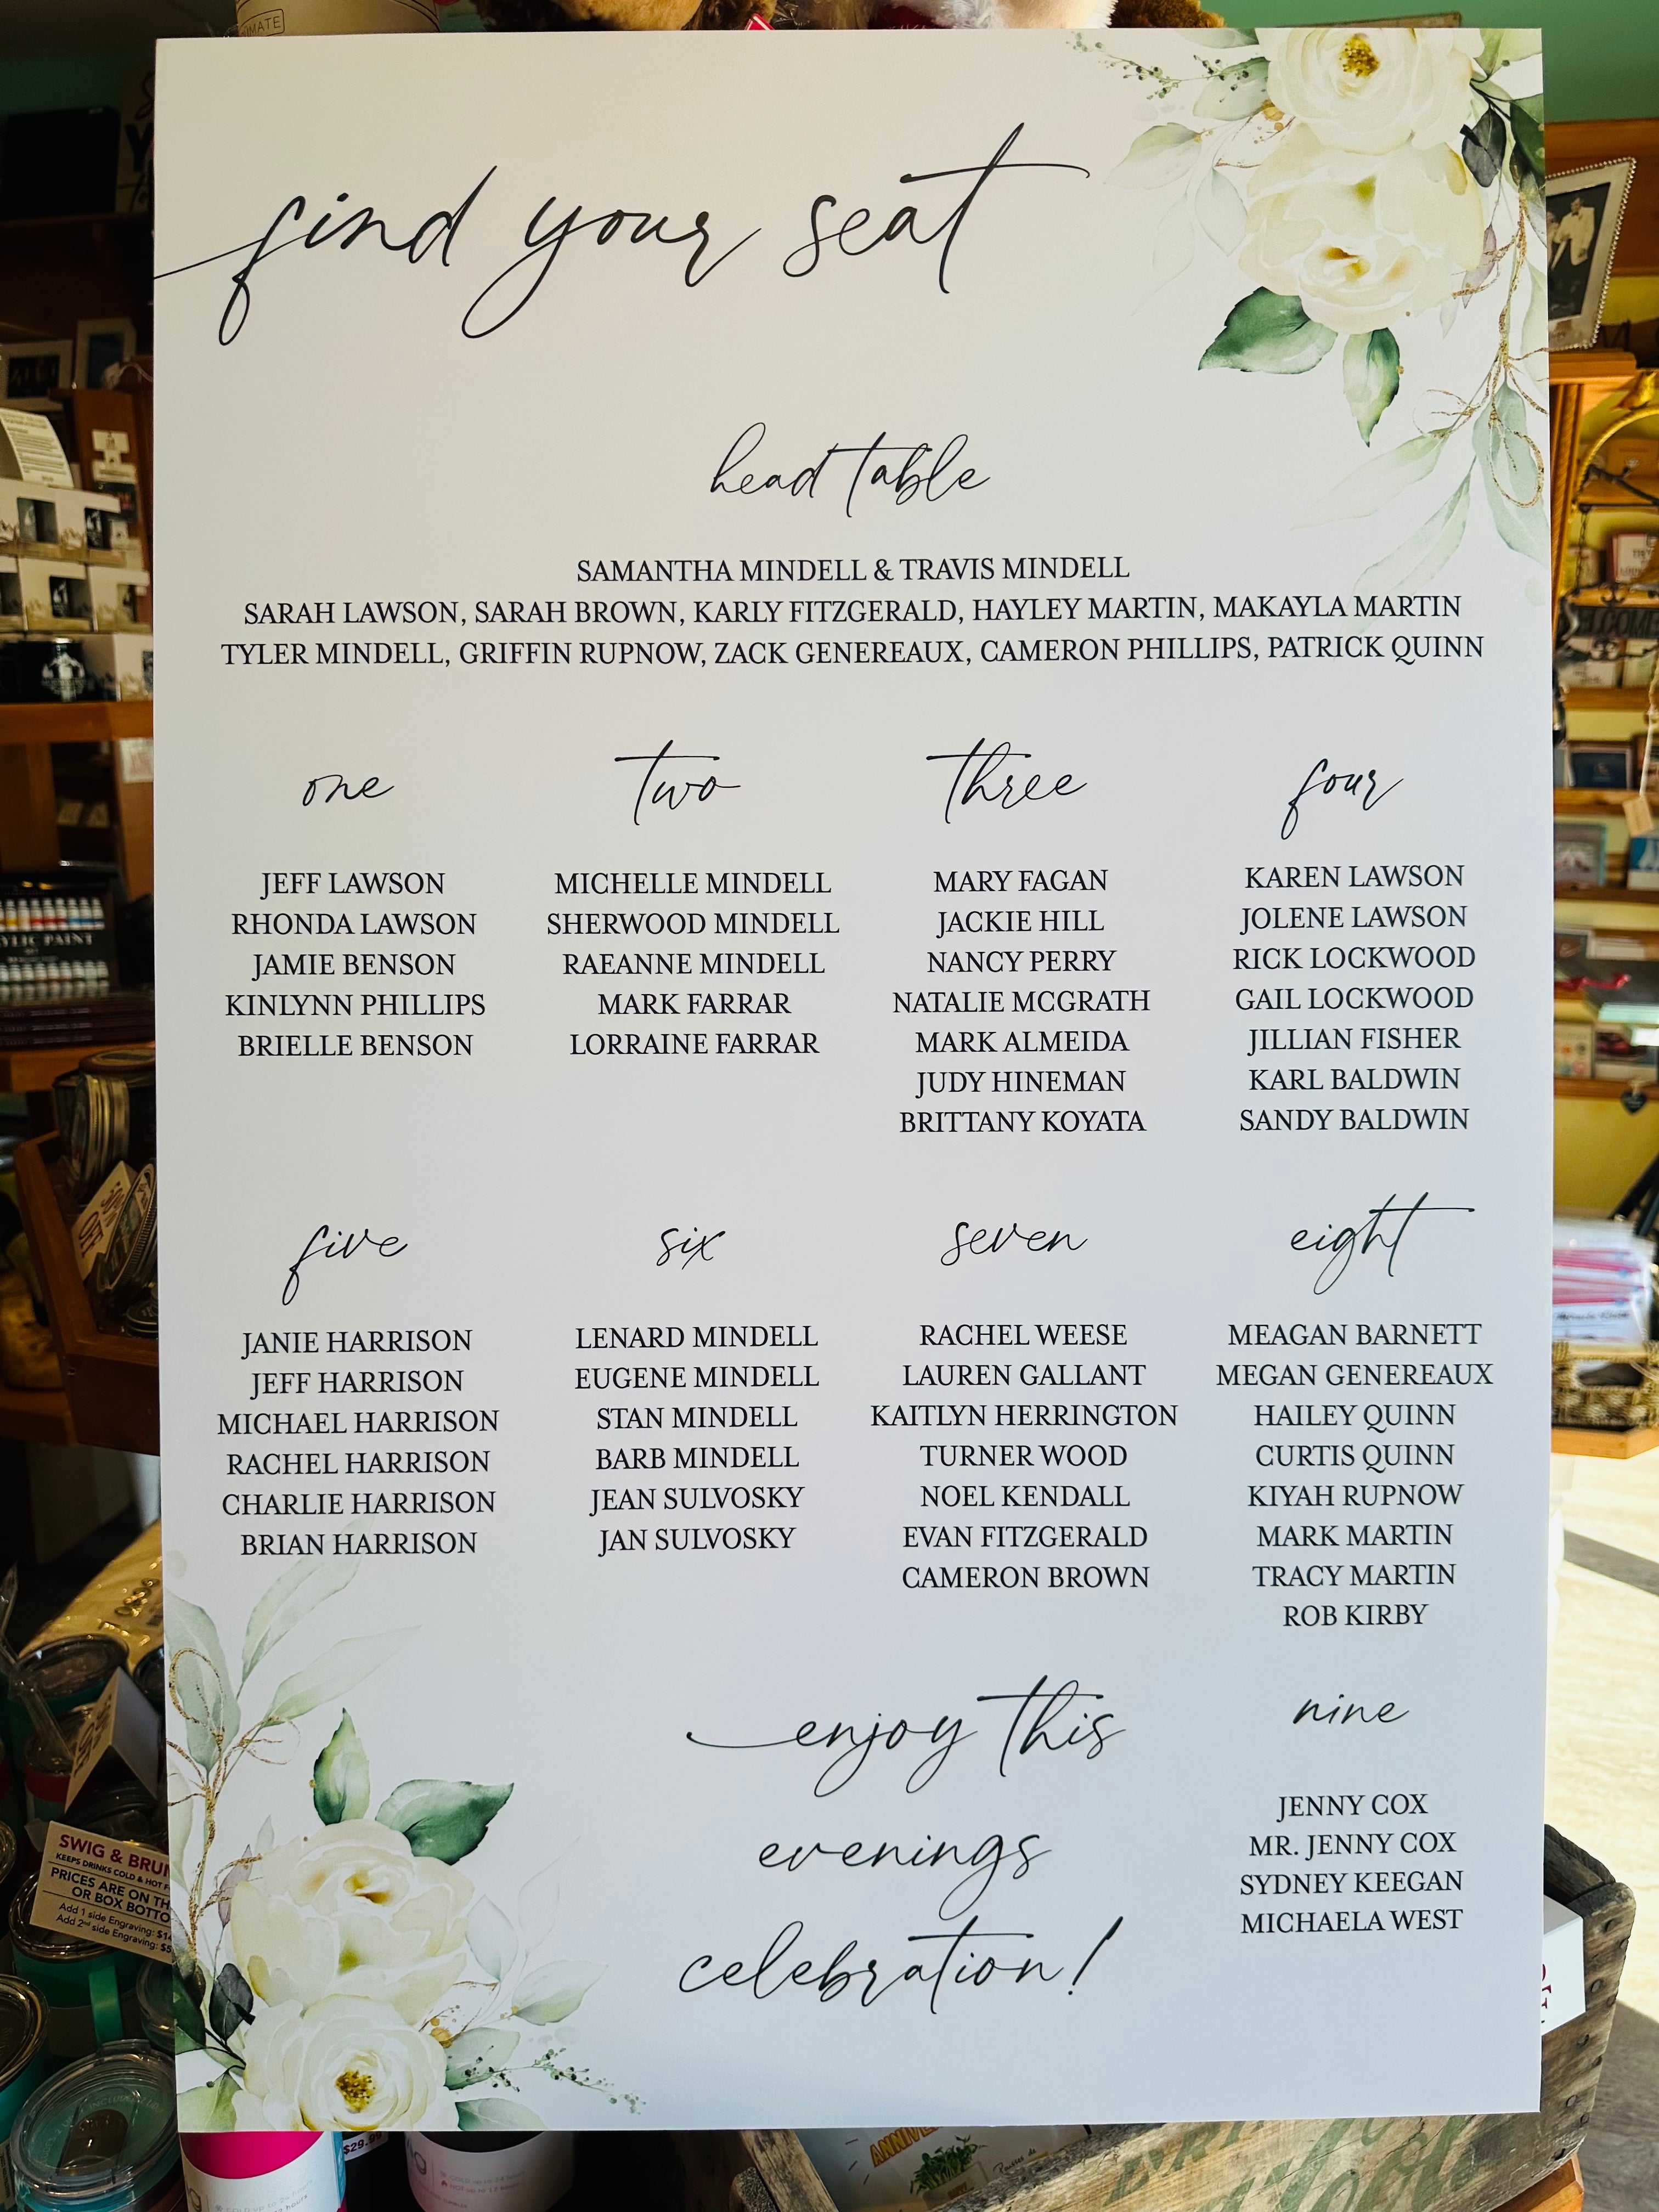 find your seat
head table
SAMANTHA MINDELL & TRAVIS MINDELL
SARAH LAWSON, SARAH BROWN, KARLY FITZGERALD, HAYLEY MARTIN, MAKAYLA MARTIN
TYLER MINDELL, GRIFFIN RUPNOW, ZACK GENEREAUX, CAMERON PHILLIPS, PATRICK QUINN
one
JEFF LAWSON
RHONDA LAWSON
JAMIE BENSON
KINLYNN PHILLIPS
BRIELLE BENSON
two
MICHELLE MINDELL
SHERWOOD MINDELL
RAEANNE MINDELL
MARK FARRAR
LORRAINE FARRAR
three
MARY FAGAN
JACKIE HILL
NANCY PERRY
NATALIE MCGRATH
MARK ALMEIDA
JUDY HINEMAN
BRITTANY KOYATA
four
KAREN LAWSON
JOLENE LAWSON
RICK LOCKWOOD
GAIL LOCKWOOD
JILLIAN FISHER
KARL BALDWIN
SANDY BALDWIN
five
JANIE HARRISON
JEFF HARRISON
MICHAEL HARRISON
RACHEL HARRISON
CHARLIE HARRISON
BRIAN HARRISON
six
LENARD MINDELL
EUGENE MINDELL
STAN MINDELL
BARB MINDELL
JEAN SULVOSKY
JAN SULVOSKY
seven
RACHEL WEESE
LAUREN GALLANT
KAITLYN HERRINGTON
TURNER WOOD
NOEL KENDALL
EVAN FITZGERALD
CAMERON BROWN
eight
MEAGAN BARNETT
MEGAN GENEREAUX
HAILEY QUINN
CURTIS QUINN
KIYAH RUPNOW
MARK MARTIN
TRACY MARTIN
ROB KIRBY
nine
JENNY COX
MR. JENNY COX
SYDNEY KEEGAN
MICHAELA WEST
enjoy this
evenings
celebration!
50%
OFF
SWIG & BRU
KEEPS DRINKS COLD & HOT F
PRICES ARE ON TH
OR BOX BOTTO
Add 1 side Engraving: $1
Add 2nd side Engraving: $5
$29.99